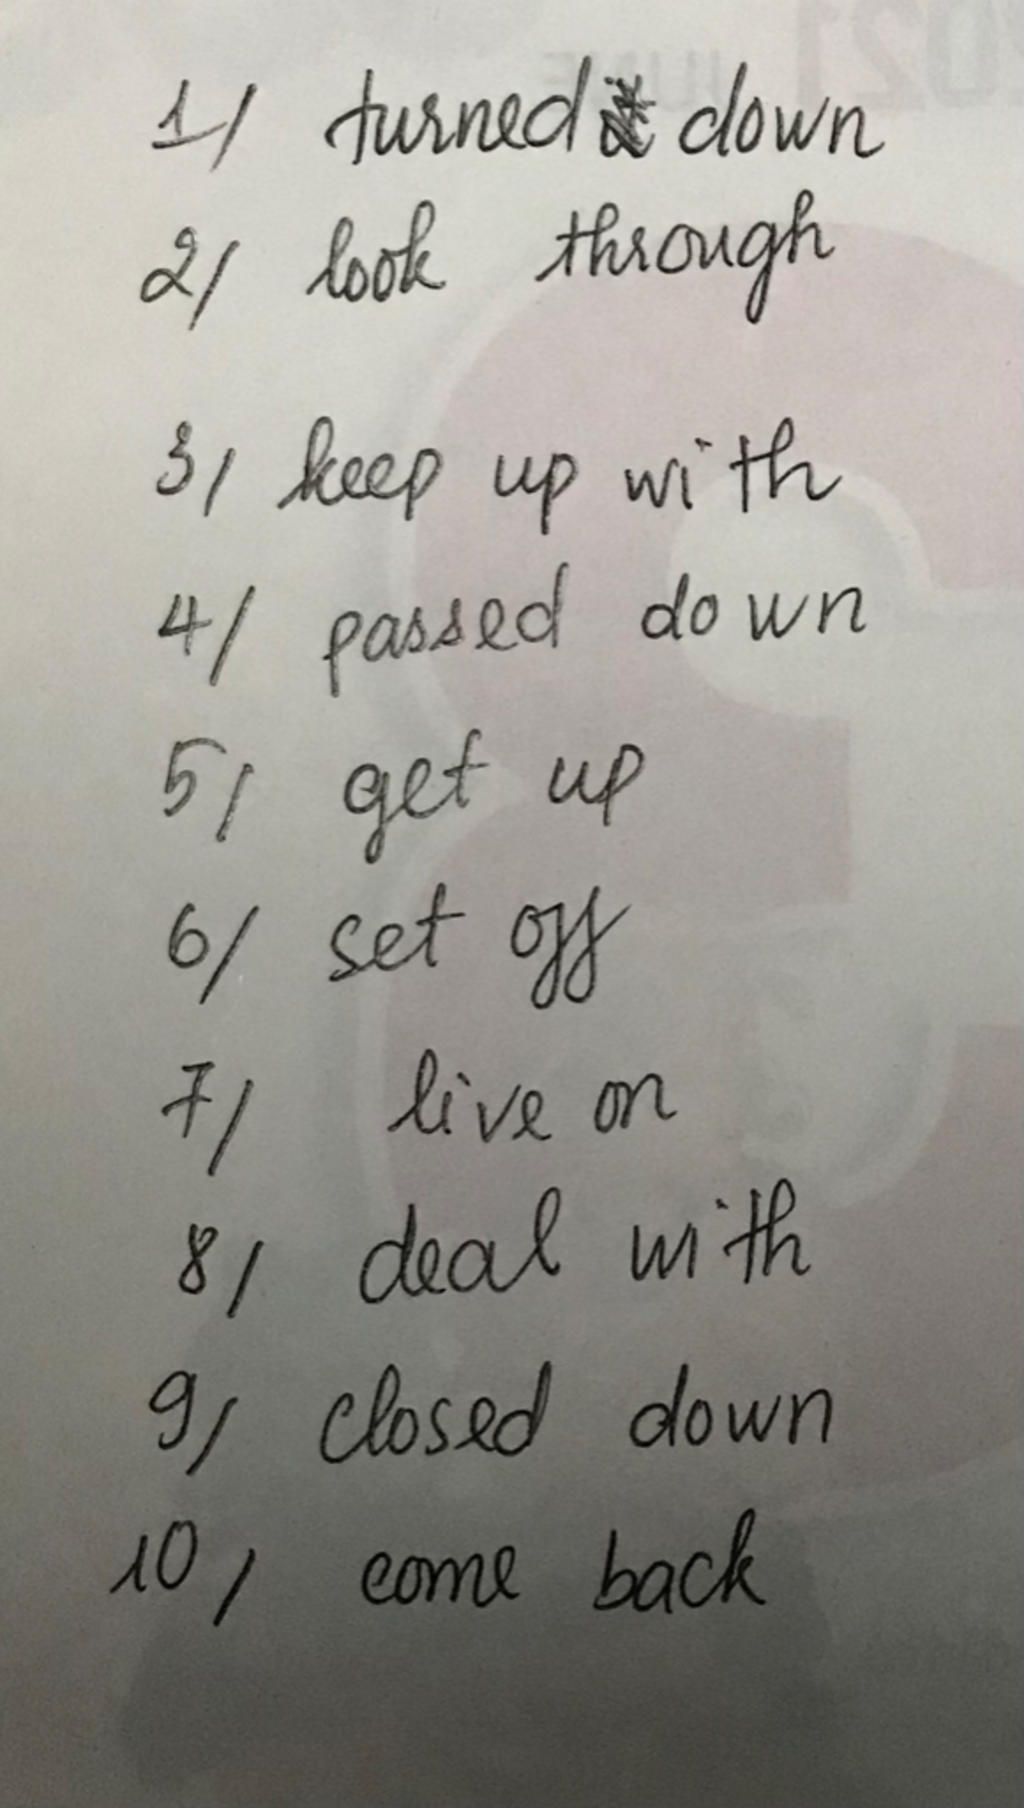 1/ turned down
2/ look through
3/ keep up with
4/ passed down
5/ get up
6/ set off
7/ live on
8/ deal with
9/ closed down
10/ come back